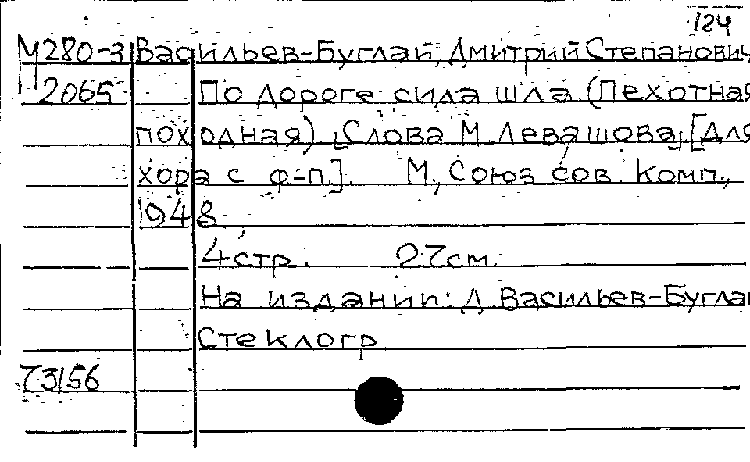 124
М280-3 Васильев-Буглай, Дмитрий Степанович
2065 По дороге сила шла (Пехотная
походная) [Слова М. Левашова] [Для
хора с ф-п.] М, Союз сов. комп.,
1948
4 стр. 27см.
На издании: Д. Васильев-Буглай
Стеклогр
73/56